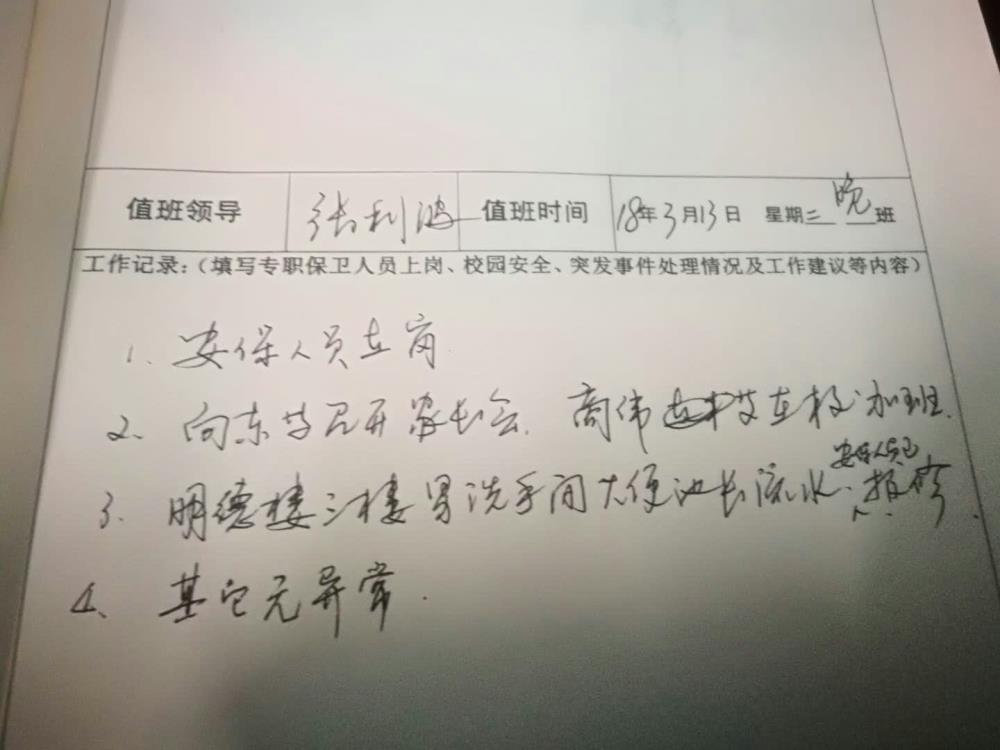 值班领导 张利波 值班时间 18年3月13日 星期二 晚班
工作记录：（填写专职保卫人员上岗、校园安全、突发事件处理情况及工作建议等内容）
1. 安保人员在岗
2、向东等召开家长会. 商伟 在校加班.
3. 明德楼三楼男洗手间大便池长流水、安保人员已报修.
4、其它无异常.